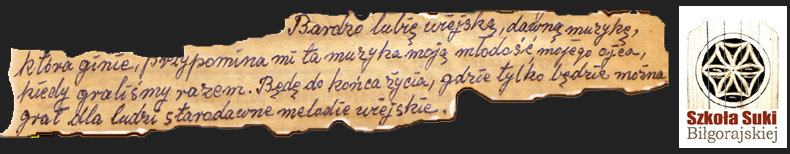 Bardzo lubię wiejską, dawną muzykę,
która ginie, przypomina mi ta muzyka moją młodość mojego ojca,
kiedy graliśmy razem. Będę do końca życia, gdzie tylko będzie można
grał dla ludzi staradawne melodie wiejskie.
Szkoła Suki
Biłgorajskiej